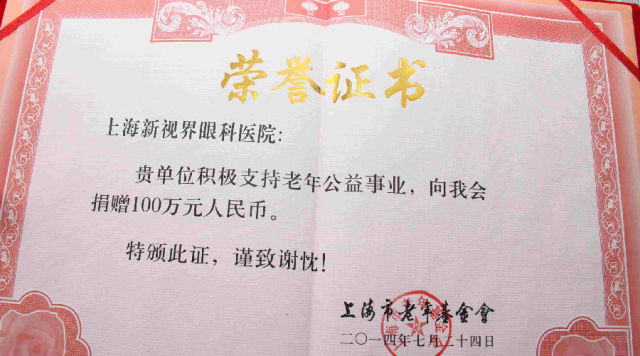 荣誉证书
上海新视界眼科医院：
贵单位积极支持老年公益事业，向我会
捐赠100万元人民币。
特颁此证，谨致谢忱！
上海市老年基金會
二〇一四年七月二十四日